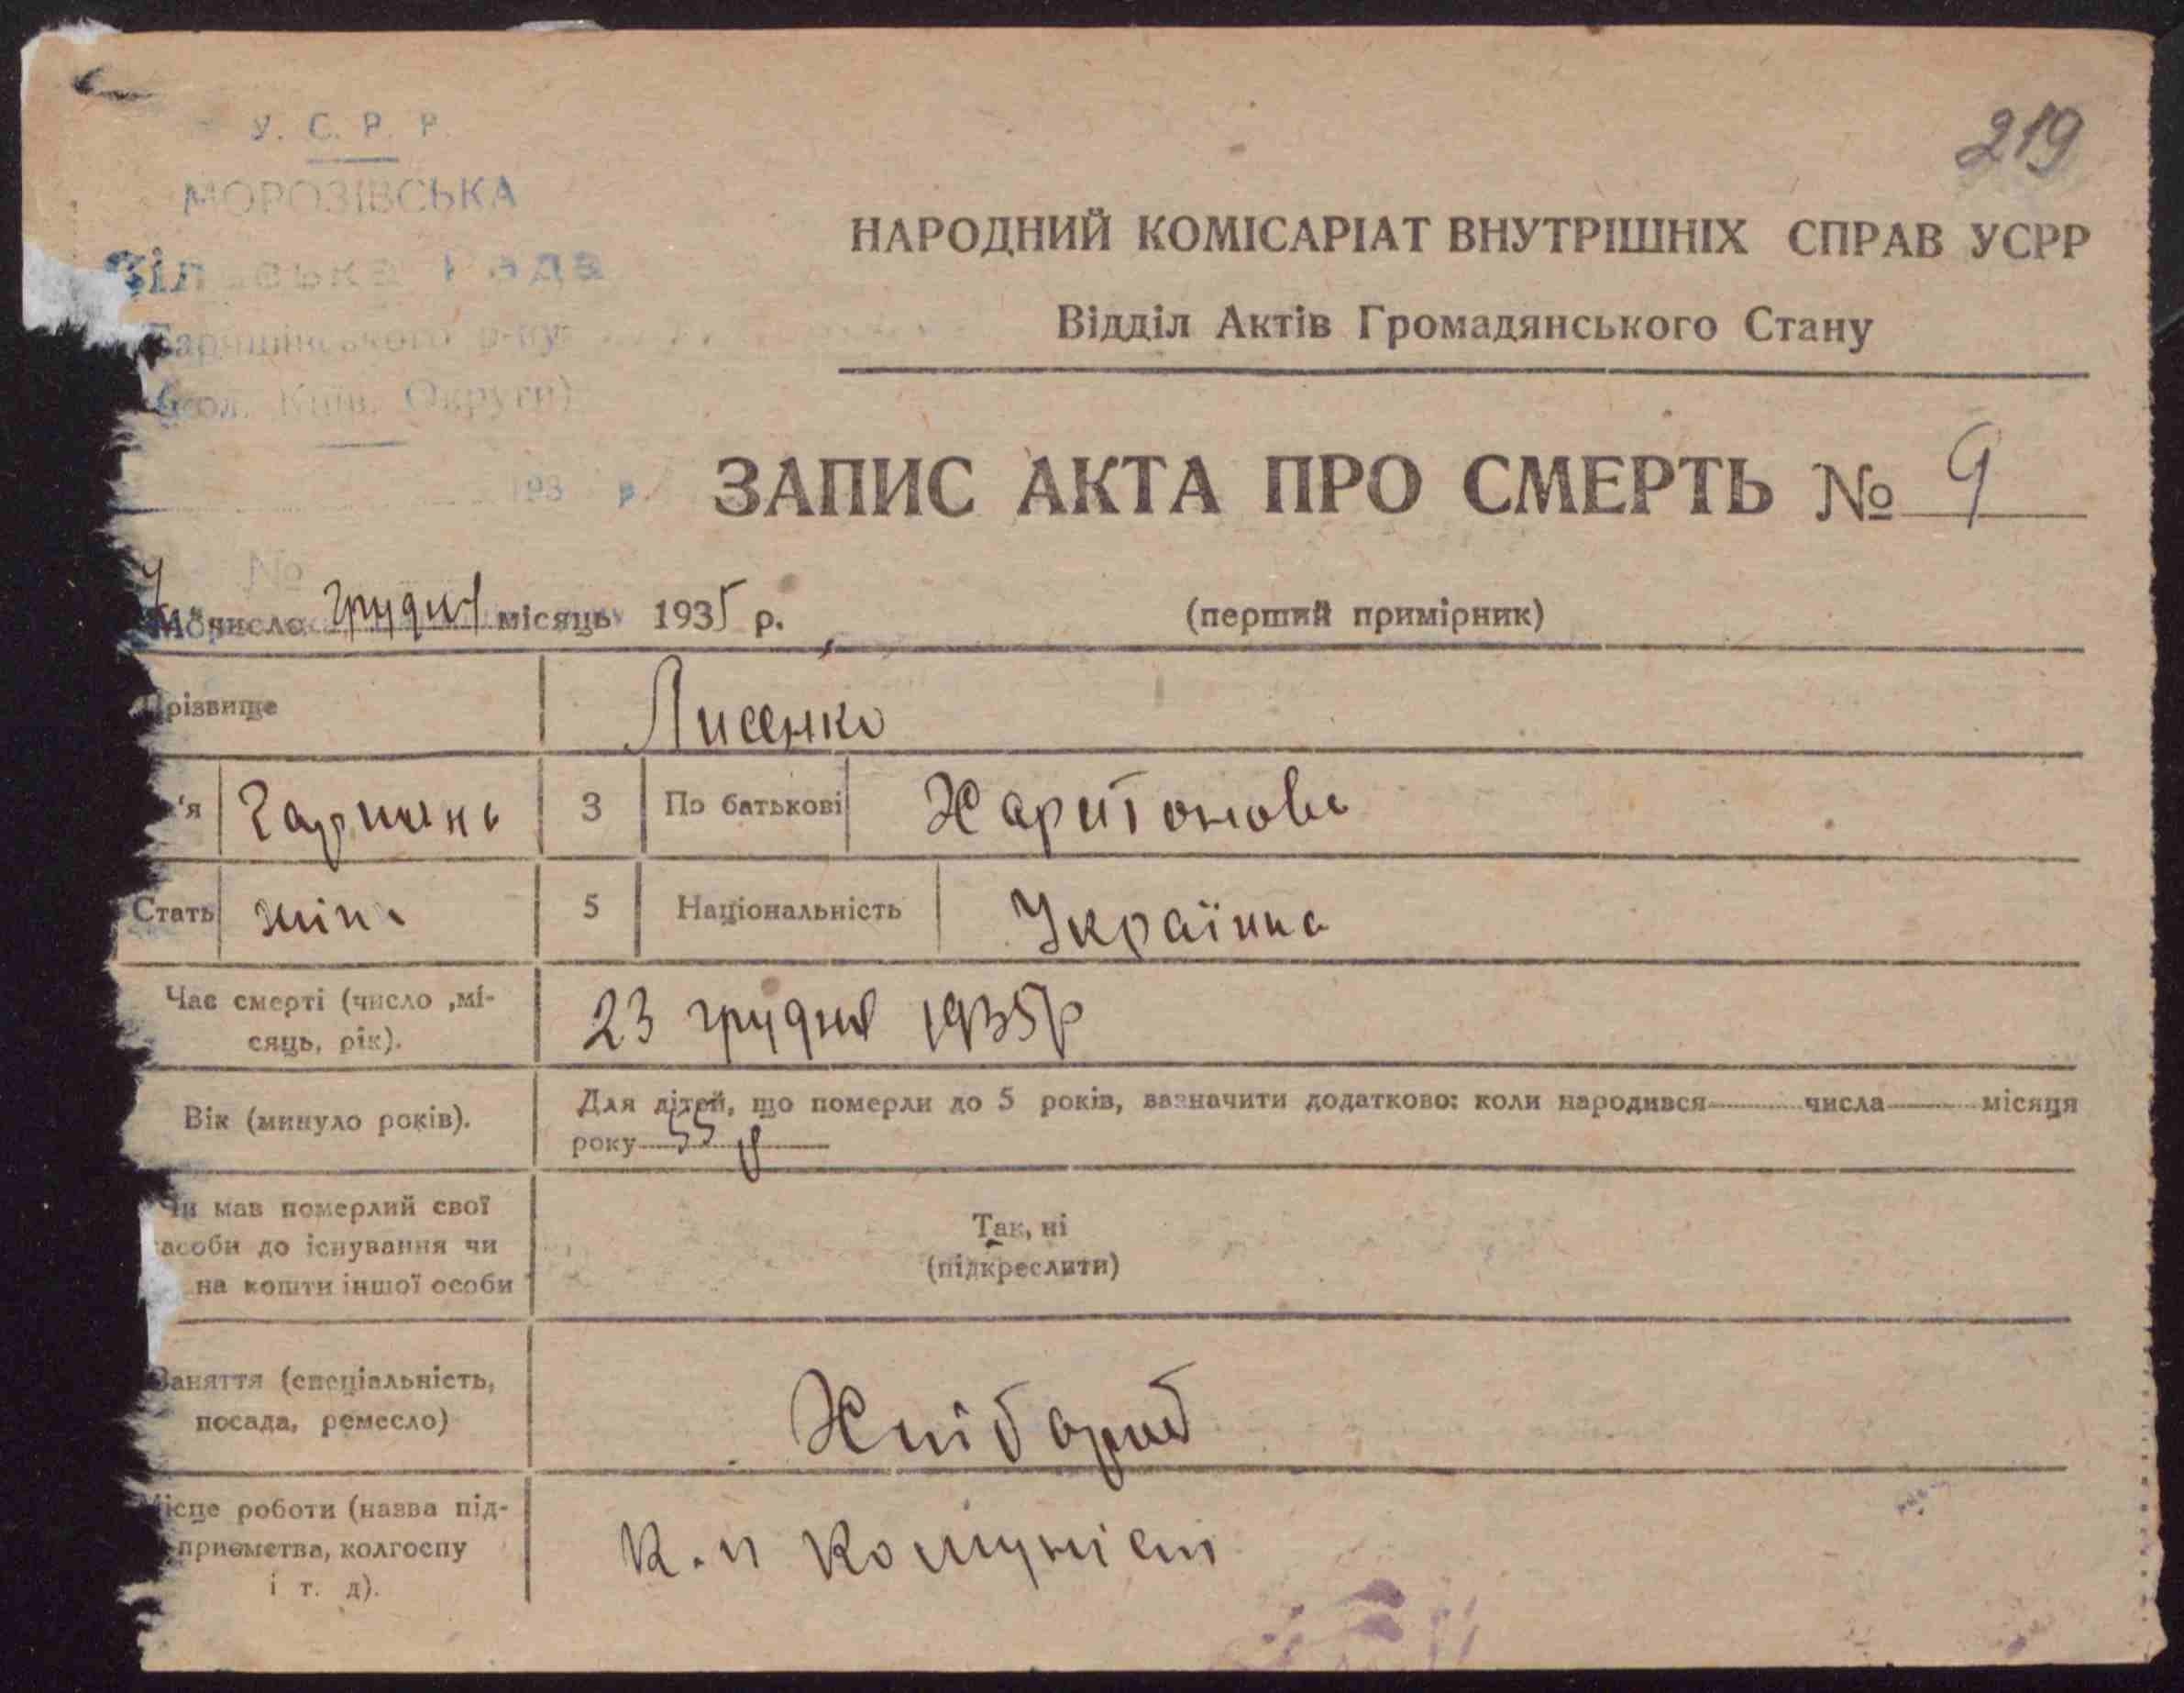 У. С. Р. Р.
МОРОЗІВСЬКА
Рада
р-ну
Київ. Округи)
193 р.
№
219
НАРОДНИЙ КОМІСАРІАТ ВНУТРІШНІХ СПРАВ УСРР
Відділ Актів Громадянського Стану
ЗАПИС АКТА ПРО СМЕРТЬ № 9
число грудня місяць 1935 р. (перший примірник)
різвище Лисенко
'я 3 По батькові Харитонова
Стать жін. 5 Національність Українка
Час смерті (число ,мі-
сяць, рік). 23 грудня 1935р
Вік (минуло років). Для дітей, що померли до 5 років, зазначити додатково: коли народився числа місяця
року 55 р
Чи мав померлий свої
асоби до існування чи
на кошти іншої особи
Так, ні
(підкреслити)
Заняття (спеціальність,
посада, ремесло) Хлібороб
Місце роботи (назва під-
приємства, колгоспу
і т. д). Комуніст